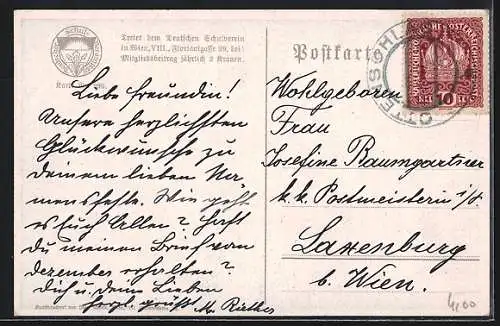 Schul-
Karte Nr.
Tretet dem Deutschen Schulverein
in Wien, VIII., Florianigasse 39, bei!
Mitgliedsbeitrag jährlich 2 Kronen.
Postkarte
10
Liebe Freundin!
Unsere herzlichsten
Glückwünsche zu
Deinem lieben Na-
mensfeste. Wie geht
es Euch Allen? Hast
Du meinen Brief vom
Dezember erhalten?
Dich u. Deine Lieben
herzl. grüßt
Wohlgeboren
Frau
Josefine Baumgartner
k.k. Postmeisterin i/s.
Laxenburg
b. Wien.
4,00